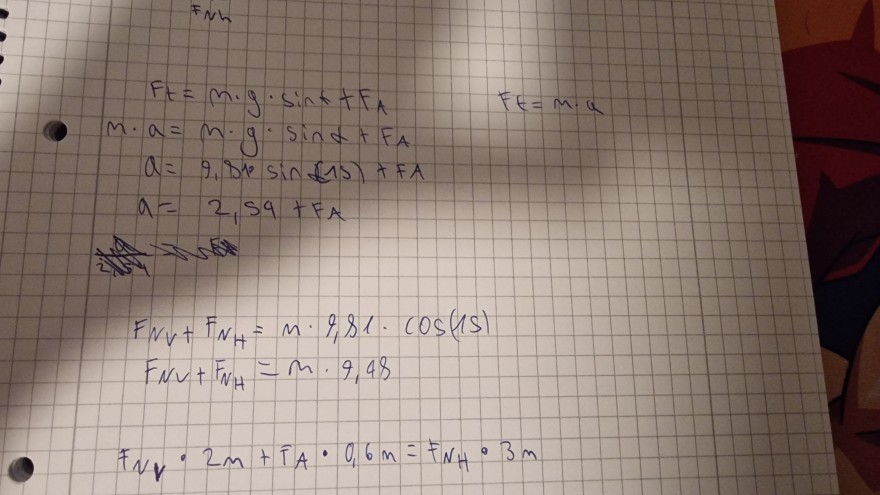 FNh
Ft = m·g·sinα + FA
Ft = m·a
m·a = m·g·sinα + FA
a = 9,81 sin(15) + FA
a = 2,54 + FA
FNV + FNH = m·9,81·cos(15)
FNV + FNH = m·9,48
FNV·2m + FA·0,6m = FNH·3m